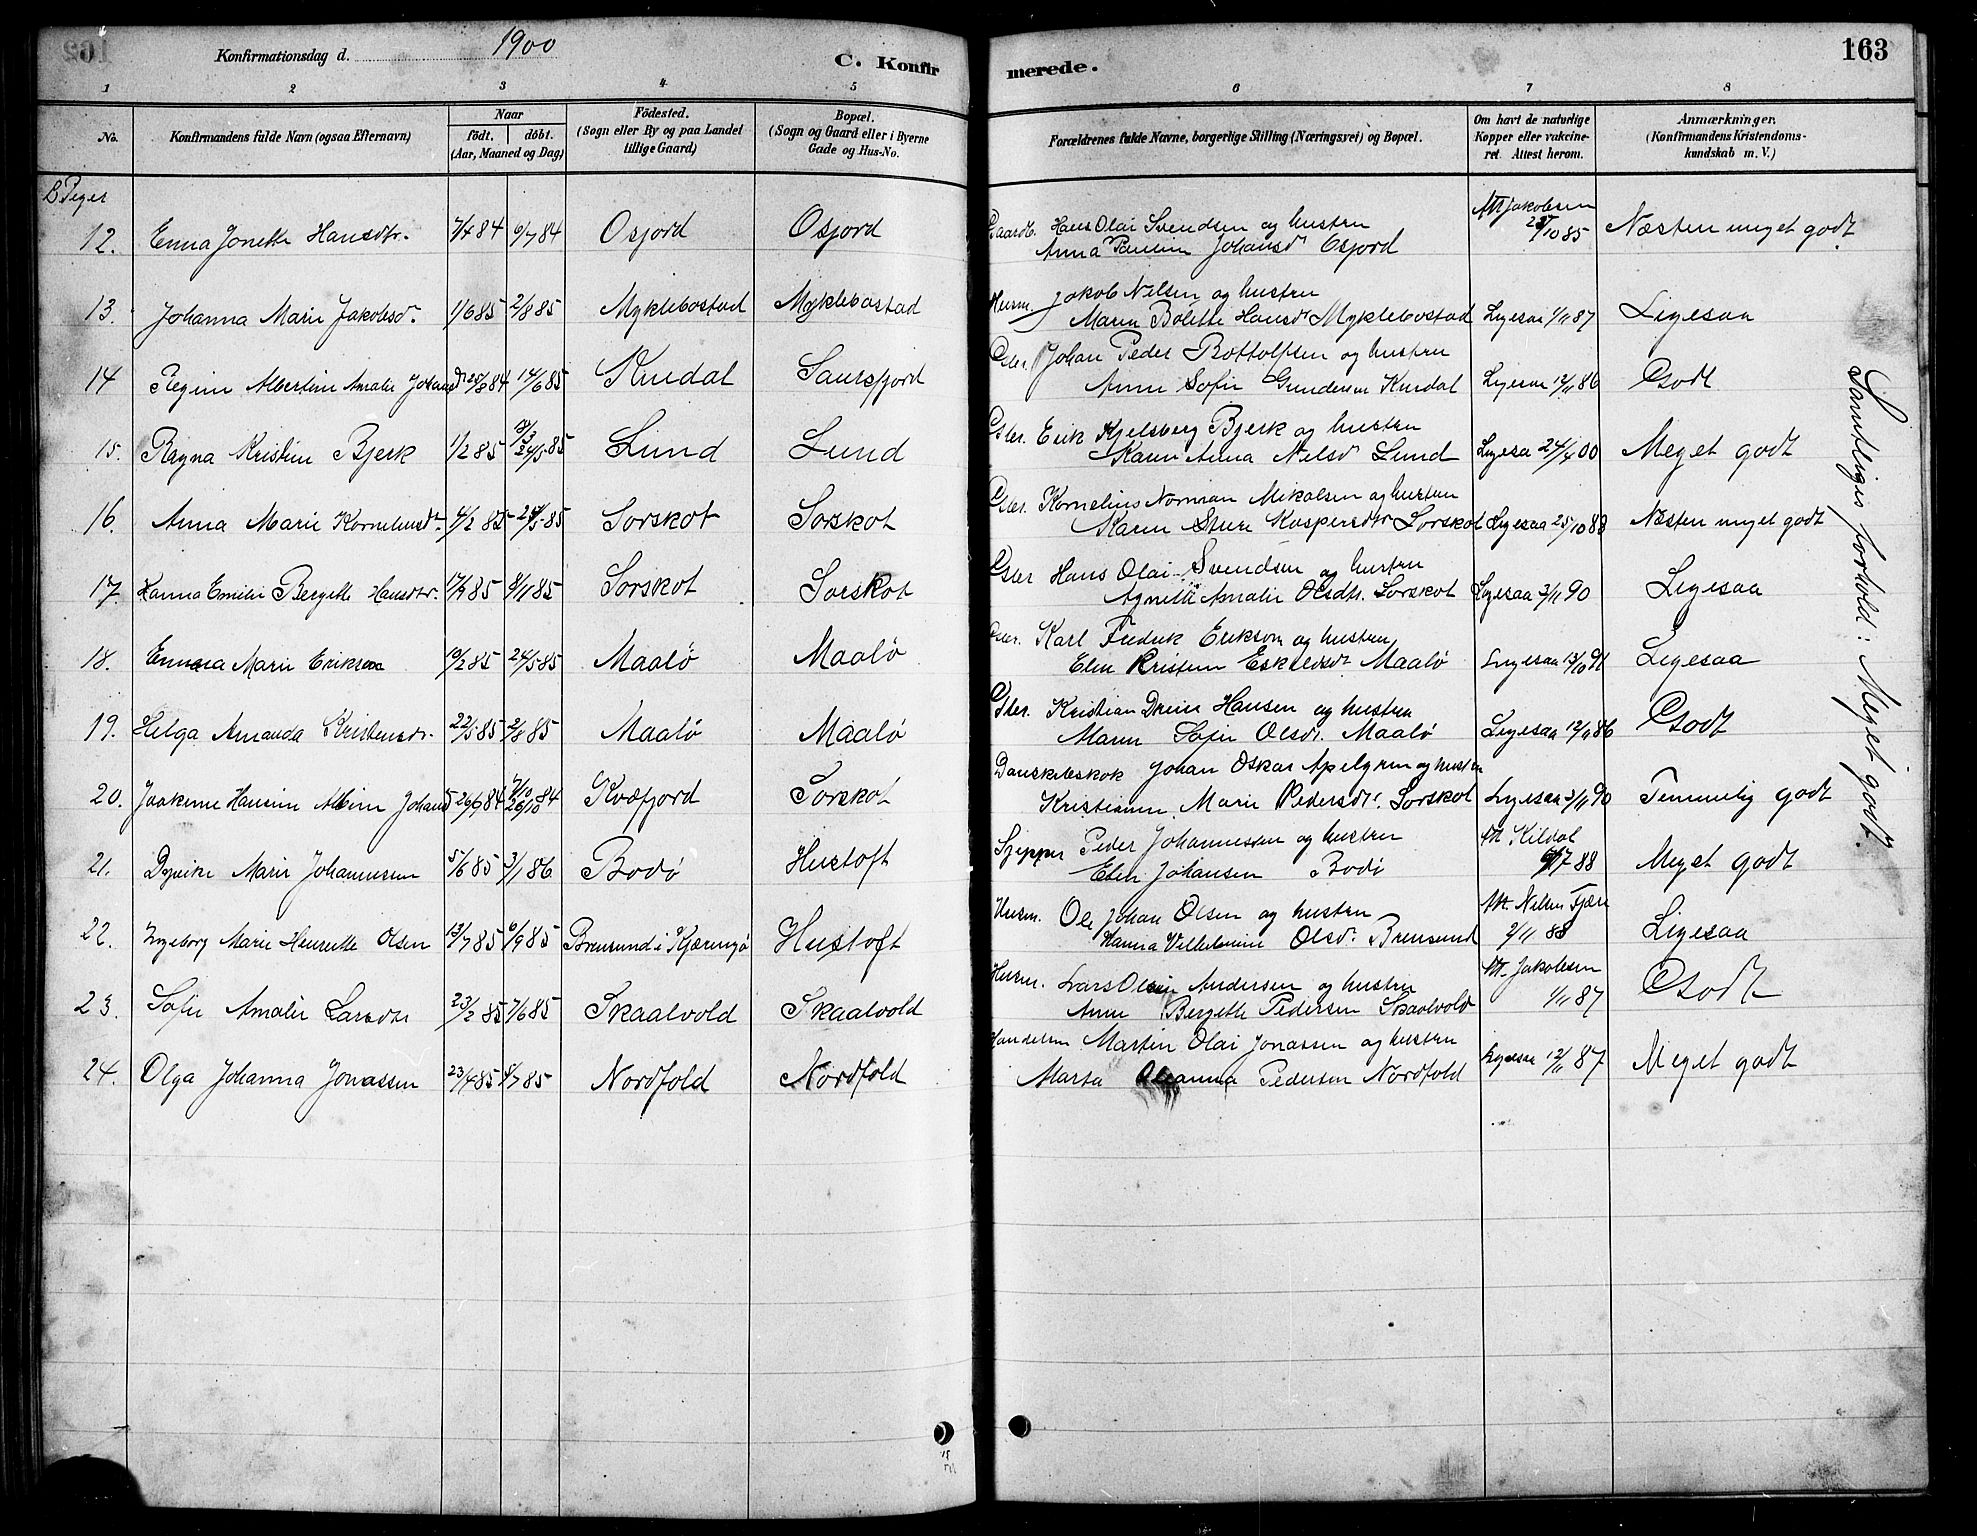 Konfirmationsdag d. 1900
C. Konfirmerede.
163
1 2 3 4 5 6 7 8
No.
Konfirmandens fulde Navn (ogsaa Efternavn)
Naar
födt. döbt.
(Aar, Maaned og Dag)
Födested.
(Sogn eller By og paa Landet
tillige Gaard)
Bopæl.
(Sogn og Gaard eller i Byerne
Gade og Hus-No.
Forældrenes fulde Navne, borgerlige Stilling (Næringsvei) og Bopæl.
Om havt de naturlige
Kopper eller vakcine-
ret. Attest herom.
Anmærkninger.
(Konfirmandens Kristendoms-
kundskab m. V.)
Piger
12. Emma Jonette Hansdtr. 7/4 84 6/7 84 Osjord Osjord Gaardb. Hans Olai Svendsen og hustru
Anna Paulin Johansd Osjord
Att Jakobsen
10 85 Næsten meget godt.
13. Johanna Marie Jakobsd. 1/6 85 2/8 85 Myklebostad Myklebostad Husm. Jakob Nilsen og hustru
Maren Bolette Hansdr Myklebostad Ligesaa 1/11 87 Ligesaa
14 Regine Albertine Amalie 84 14/6 85 Knedal Saursfjord Gbr. Johan Peder Bottolfsen og hustru
Anne Sofie Gundersen Knedal Ligesaa 12/11 86 Godt
15. Ragna Kristine Bjerk 1/2 85 24/5 85 Lund Lund Gbr. Erik Kjelsberg Bjerk og hustru
Karen Anna Nilsdr Lund Ligesa 24/4 00 Meget godt
16. Anna Marie Korneliusdtr. 4/2 85 24/5 85 Sorskot Sorskot Gbr. Kornelius Norman Mikalsen og hustru
Karen Kaspersdtr Sorskot Ligesaa 25/10 88 Næsten meget godt
17. Hanna Emilie Bergette Hansdtr. 17/9 85 8/11 85 Sorskot Sorskot Gbr Hans Olai Svendsen og hustru
Agnette Amalie Olsdtr. Sorskot Ligesaa 3/11 90 Ligesaa
18. Emma Marie Erikson 10/2 85 24/5 85 Maalø Maalø Gbr. Karl Fredrik Erikson og hustru
Elen Kristine Eskildsdr Maalø Ligesaa 13/10 91 Ligesaa
19. Helga Amanda Kristensdr. 22/5 85 2/8 85 Maalø Maalø Gbr. Kristian Dreier Hansen og hustru
Maren Sofie Olsdr. Maalø Ligesaa 12/11 86 Godt
20. Joakime Hansine Albine Johansd 84 26/10 84 Kvæfjord Sorskot Johan Oskar Apelgren og hustru
Kristianne Marie Pedersdr. Sorskot Ligesaa 3/11 90 Temmelig godt
21. Dyveike Marie Johannesen 5/6 85 3/1 86 Bodø Hustoft Skipper Peder Johannesen og hustru
Elen Johansen Bodø
Att Kildal
88 Meget godt
22. Ingeborg Marie Henrette Olsen 13/7 85 6/9 85 Brensund i Kjæringø Hustoft Husm. Ole Johan Olsen og hustru
Hanna Vilhelmine Olsdr. Brensund
Att. Nilsen Fjære
2/11 88 Ligesaa
23. Sofie Amalie Larsdtr 23/2 85 7/6 85 Skaalvold Skaalvold Husm. Lars Andersen og hustru
Anne Bergette Pedersen Skaalvold
Att. Jakobsen
1/11 87 Godt
24. Olga Johanna Jonassen 23/4 85 5/7 85 Nordfold Nordfold Handelsm Martin Olai Jonassen og hustru
Marta Oleanna Pedersen Nordfold Ligesaa 12/11 87 Meget godt
Samtliges forhold: Meget godt.